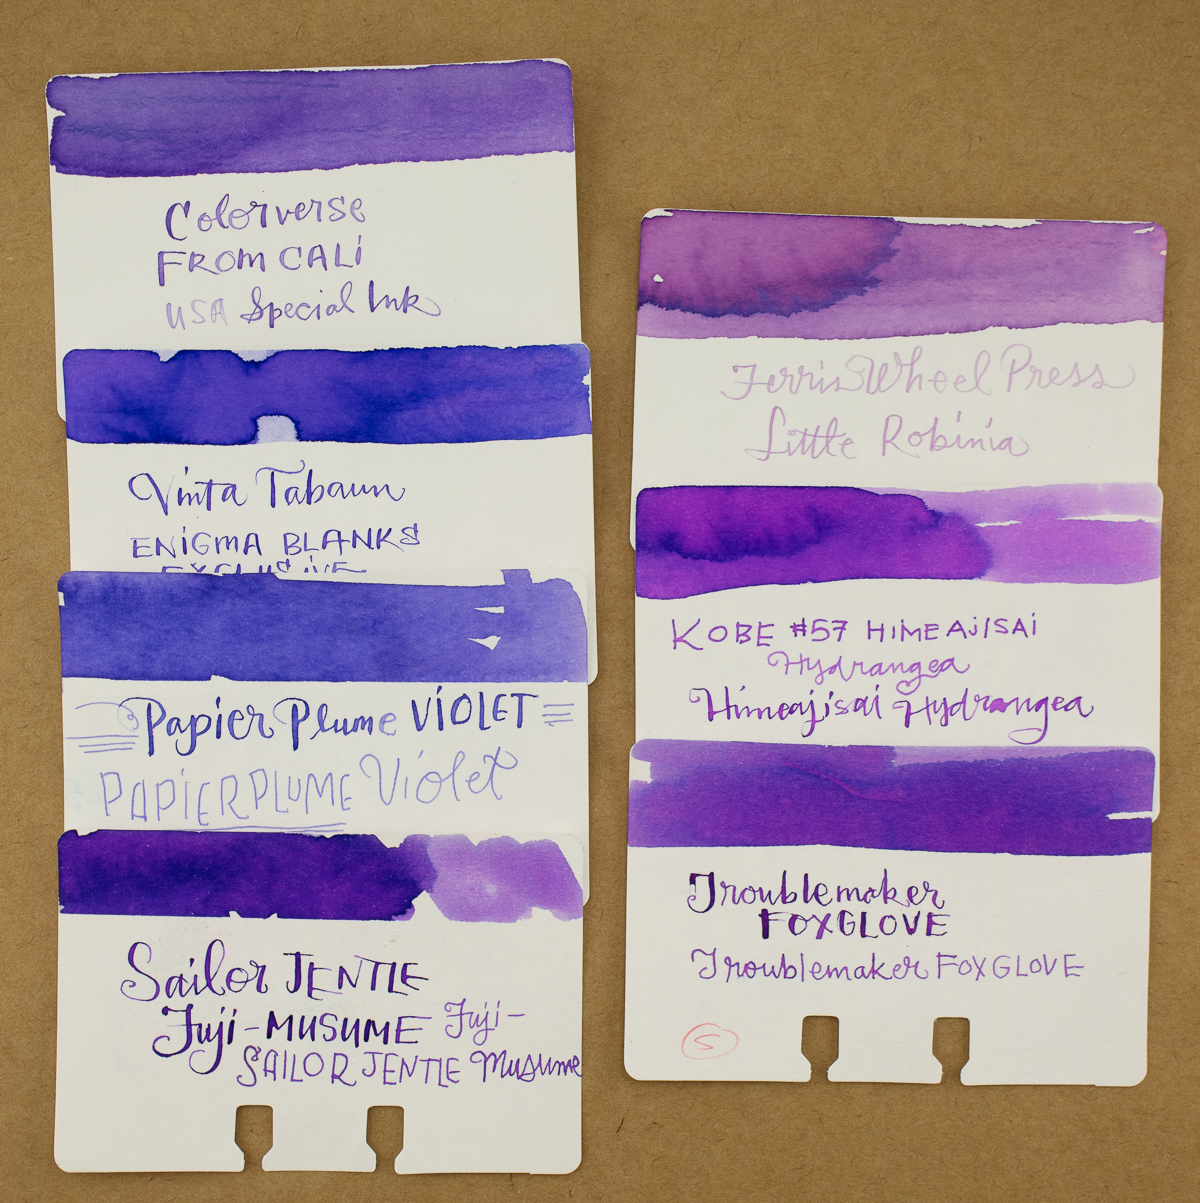 Colorverse
FROM CALI
USA Special Ink
Vinta Tabaun
ENIGMA BLANKS
EXCLUSIVE
Papier Plume VIOLET
PAPIER PLUME Violet
Sailor JENTLE
Fuji-MUSUME Fuji-
SAILOR JENTLE Musume
Ferris Wheel Press
Little Robinia
KOBE #57 HIMEAJISAI
Hydrangea
Himeajisai Hydrangea
Troublemaker
FOXGLOVE
Troublemaker FOXGLOVE
S